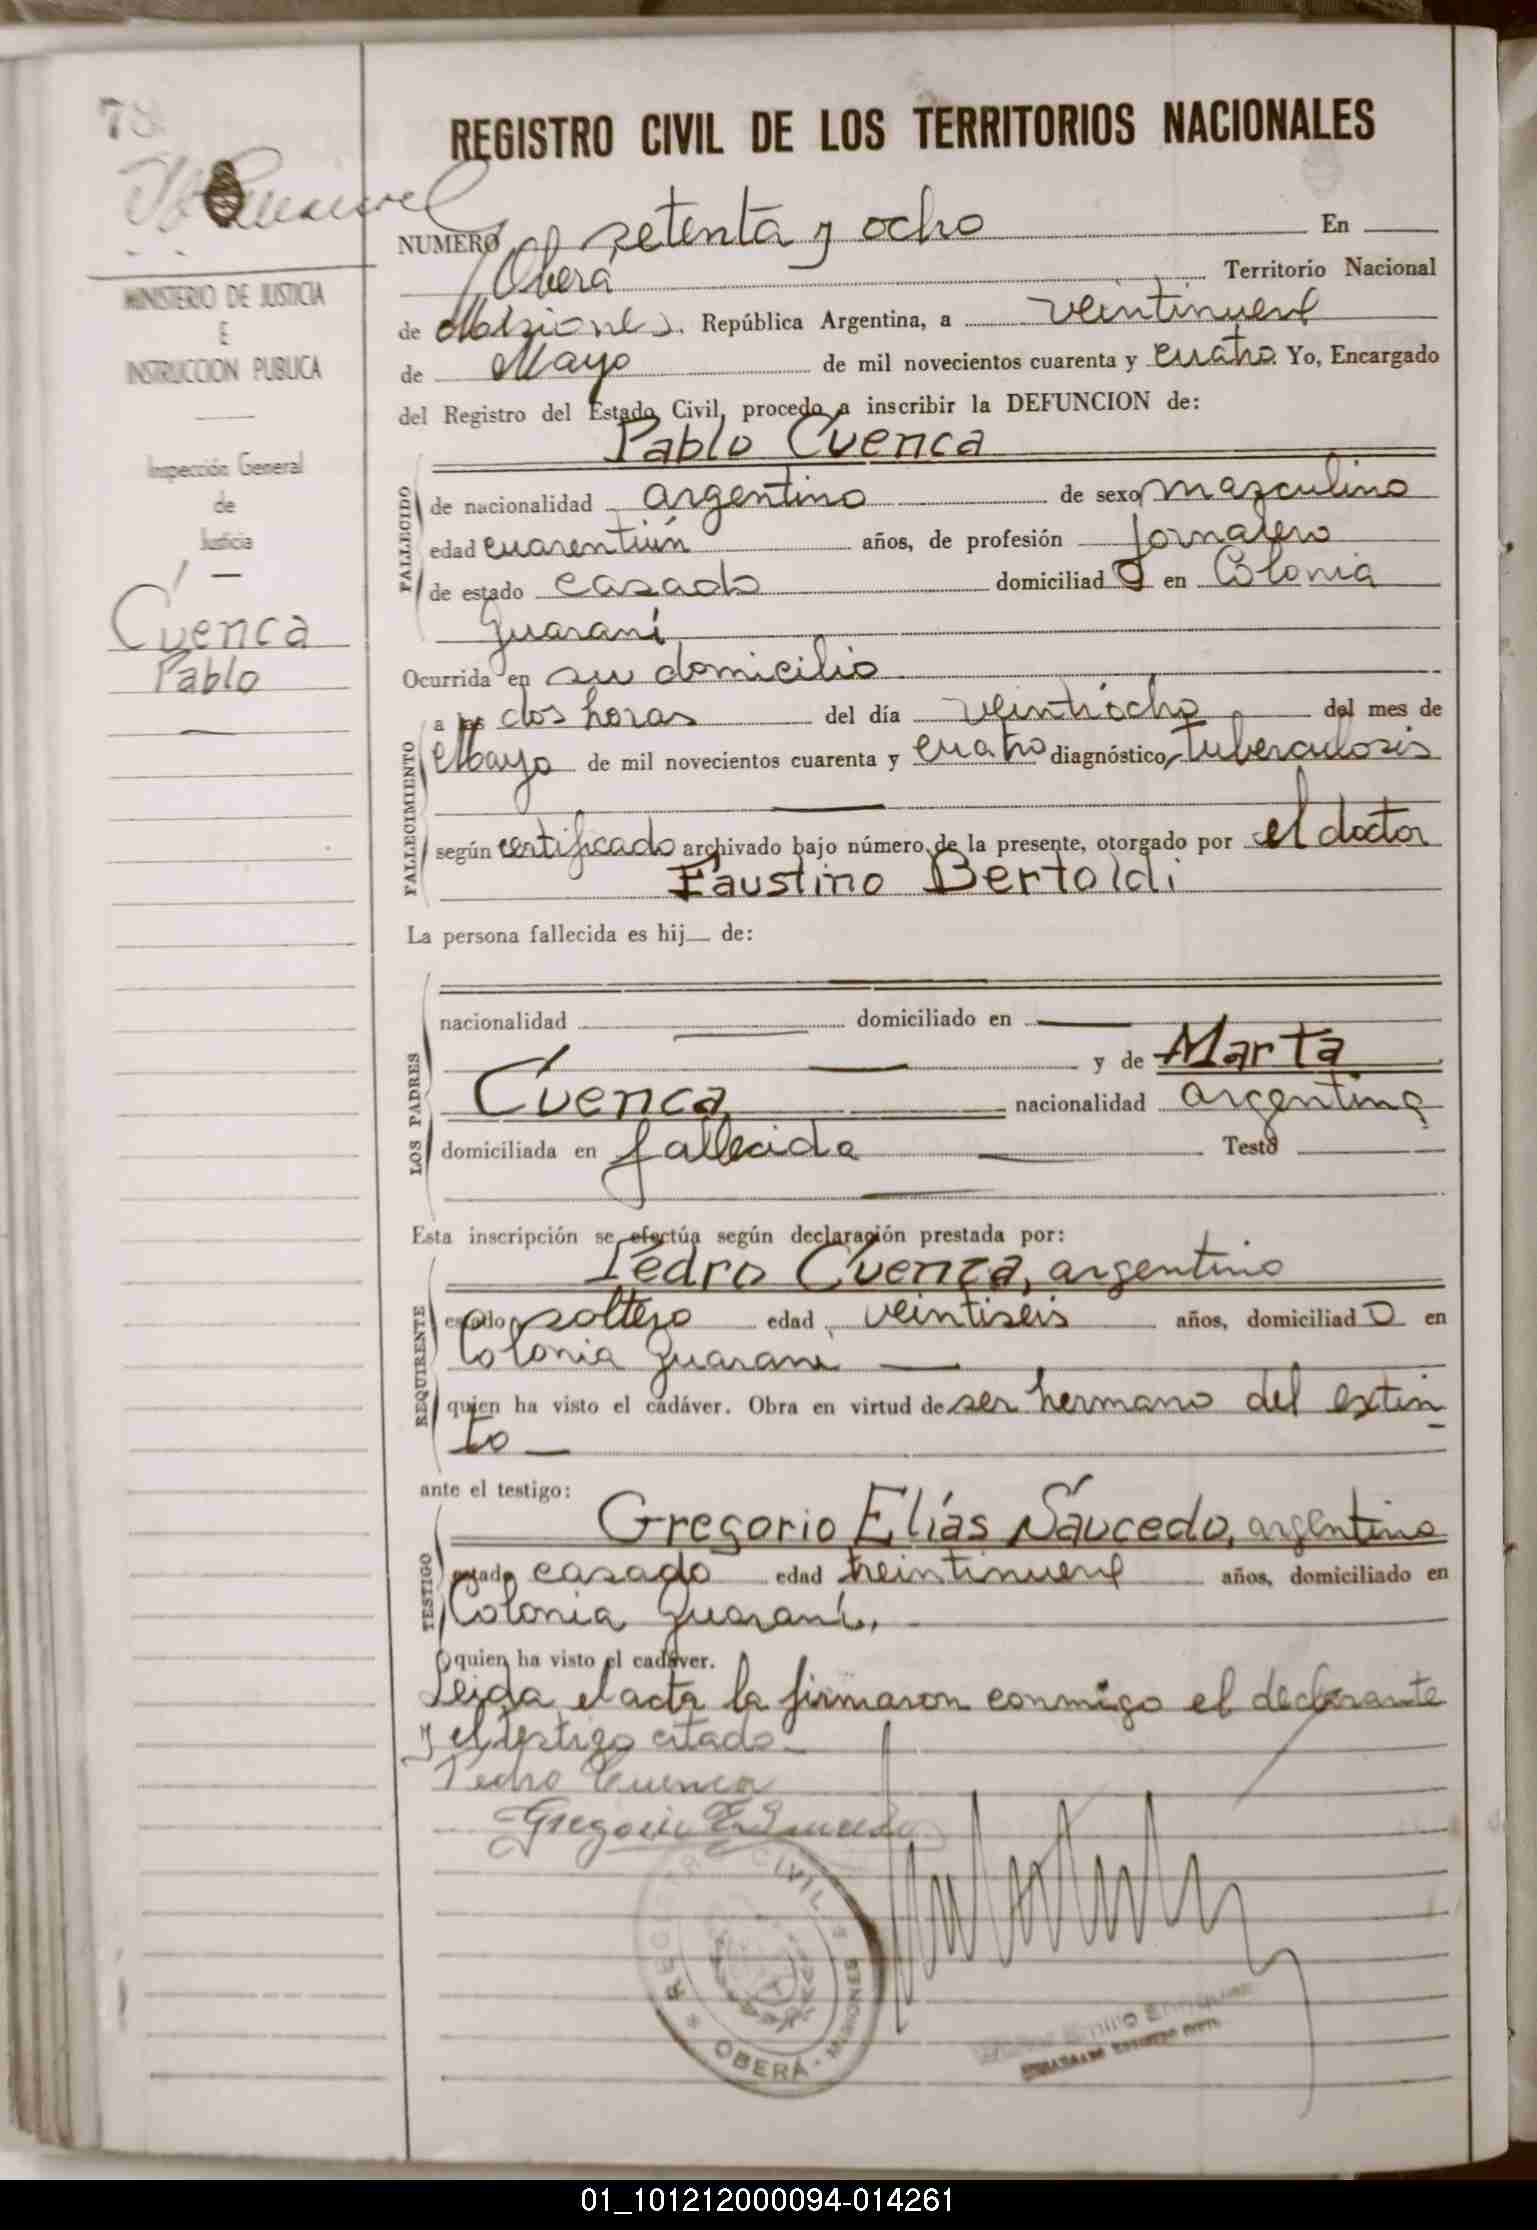 78
REGISTRO CIVIL DE LOS TERRITORIOS NACIONALES
NUMERO setenta y ocho En
Oberá Territorio Nacional
de Misiones. República Argentina, a veintinueve
de Mayo de mil novecientos cuarenta y cuatro. Yo, Encargado
del Registro del Estado Civil, procedo a inscribir la DEFUNCION de:
Pablo Cuenca
MINISTERIO DE JUSTICIA
E
INSTRUCCION PUBLICA
Inspección General
de
Justicia
Cuenca
Pablo
FALLECIDO
de nacionalidad argentino de sexo masculino
edad cuarentiún años, de profesión jornalero
de estado casado domiciliado en Colonia
Guaraní
Ocurrida en su domicilio
FALLECIMIENTO
a las dos horas del día veintiocho del mes de
Mayo de mil novecientos cuarenta y cuatro diagnóstico, tuberculosis
según certificado archivado bajo número de la presente, otorgado por el doctor
Faustino Bertoldi
La persona fallecida es hij de:
LOS PADRES
nacionalidad domiciliado en
y de Marta
Cuenca nacionalidad argentina
domiciliada en fallecida Testó
Esta inscripción se efectúa según declaración prestada por:
REQUIRENTE
Pedro Cuenca, argentino
estado soltero edad veintiseis años, domiciliado en
Colonia Guaraní
quien ha visto el cadáver. Obra en virtud de ser hermano del extin-
to
ante el testigo:
TESTIGO
Gregorio Elías Saucedo, argentino
estado casado edad treintinueve años, domiciliado en
Colonia Guaraní,
quien ha visto el cadáver.
Leida el acta la firmaron conmigo el declarante
y el testigo citado
Pedro Cuenca
Gregorio E. Saucedo
REGISTRO CIVIL
OBERÁ - MISIONES
ENCARGADO REGISTRO CIVIL
01_101212000094-014261